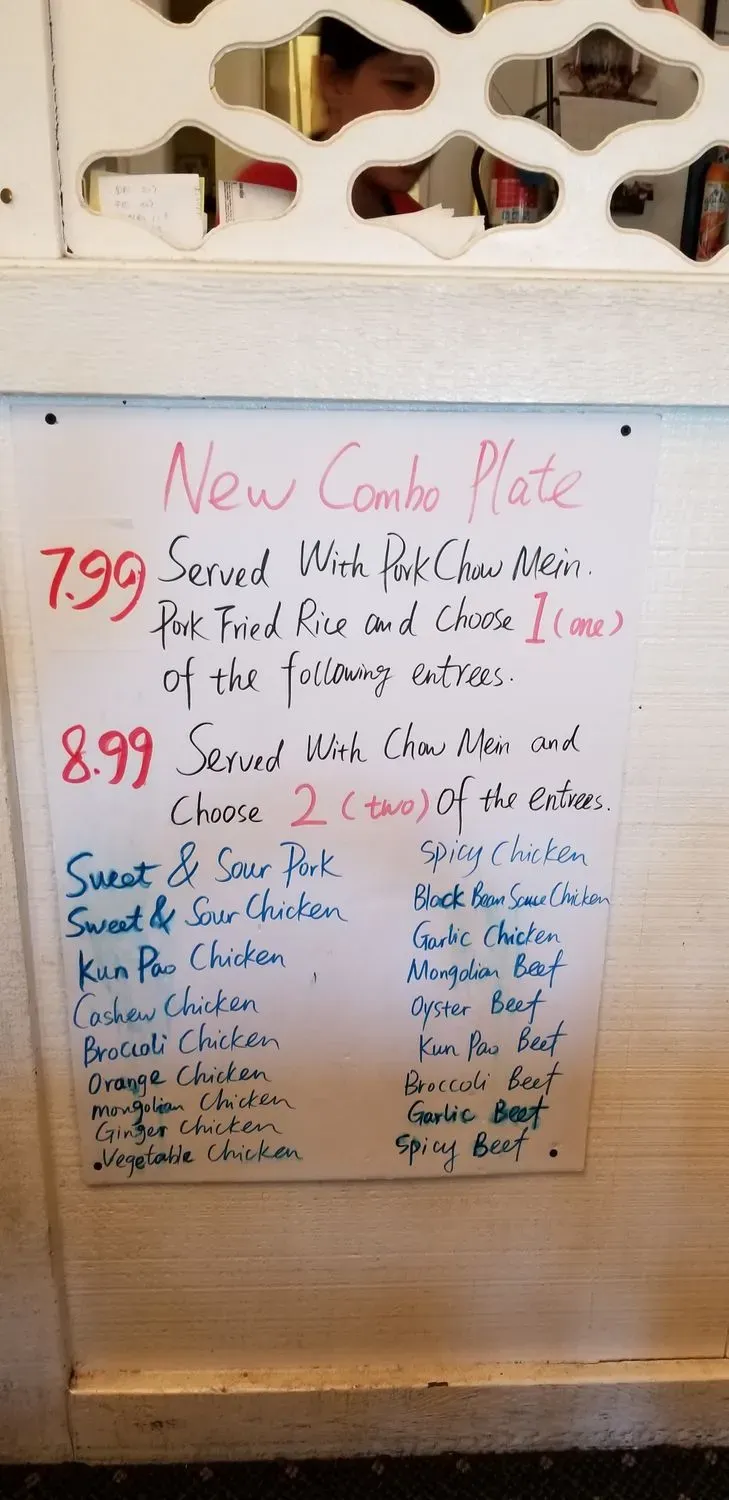 New Combo Plate
7.99 Served With Pork Chow Mein.
Pork Fried Rice and Choose 1 (one)
of the following entrees.
8.99 Served With Chow Mein and
Choose 2 (two) of the entrees.
Sweet & Sour Pork
Sweet & Sour Chicken
Kun Pao Chicken
Cashew Chicken
Broccoli Chicken
Orange Chicken
mongolian Chicken
Ginger Chicken
Vegetable Chicken
Spicy Chicken
Black Bean Sauce Chicken
Garlic Chicken
Mongolian Beef
Oyster Beef
Kun Pao Beef
Broccoli Beef
Garlic Beef
Spicy Beef